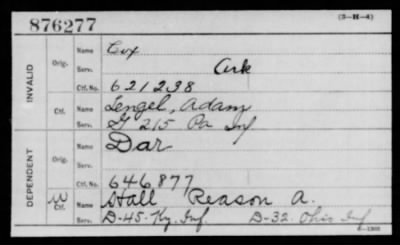 876277
(3-H-4)
INVALID
Orig.
Name Cox
Serv. Ark
Ctf. No. 621238
Ctf.
Name Lengel, Adam
Serv. G 215 Pa Inf
DEPENDENT
Orig.
Name Dar
Serv.
Ctf. No. 646877
W Ctf.
Name Stall Reason A.
Serv. D-45-Ky. Inf. D-32 Ohio Inf